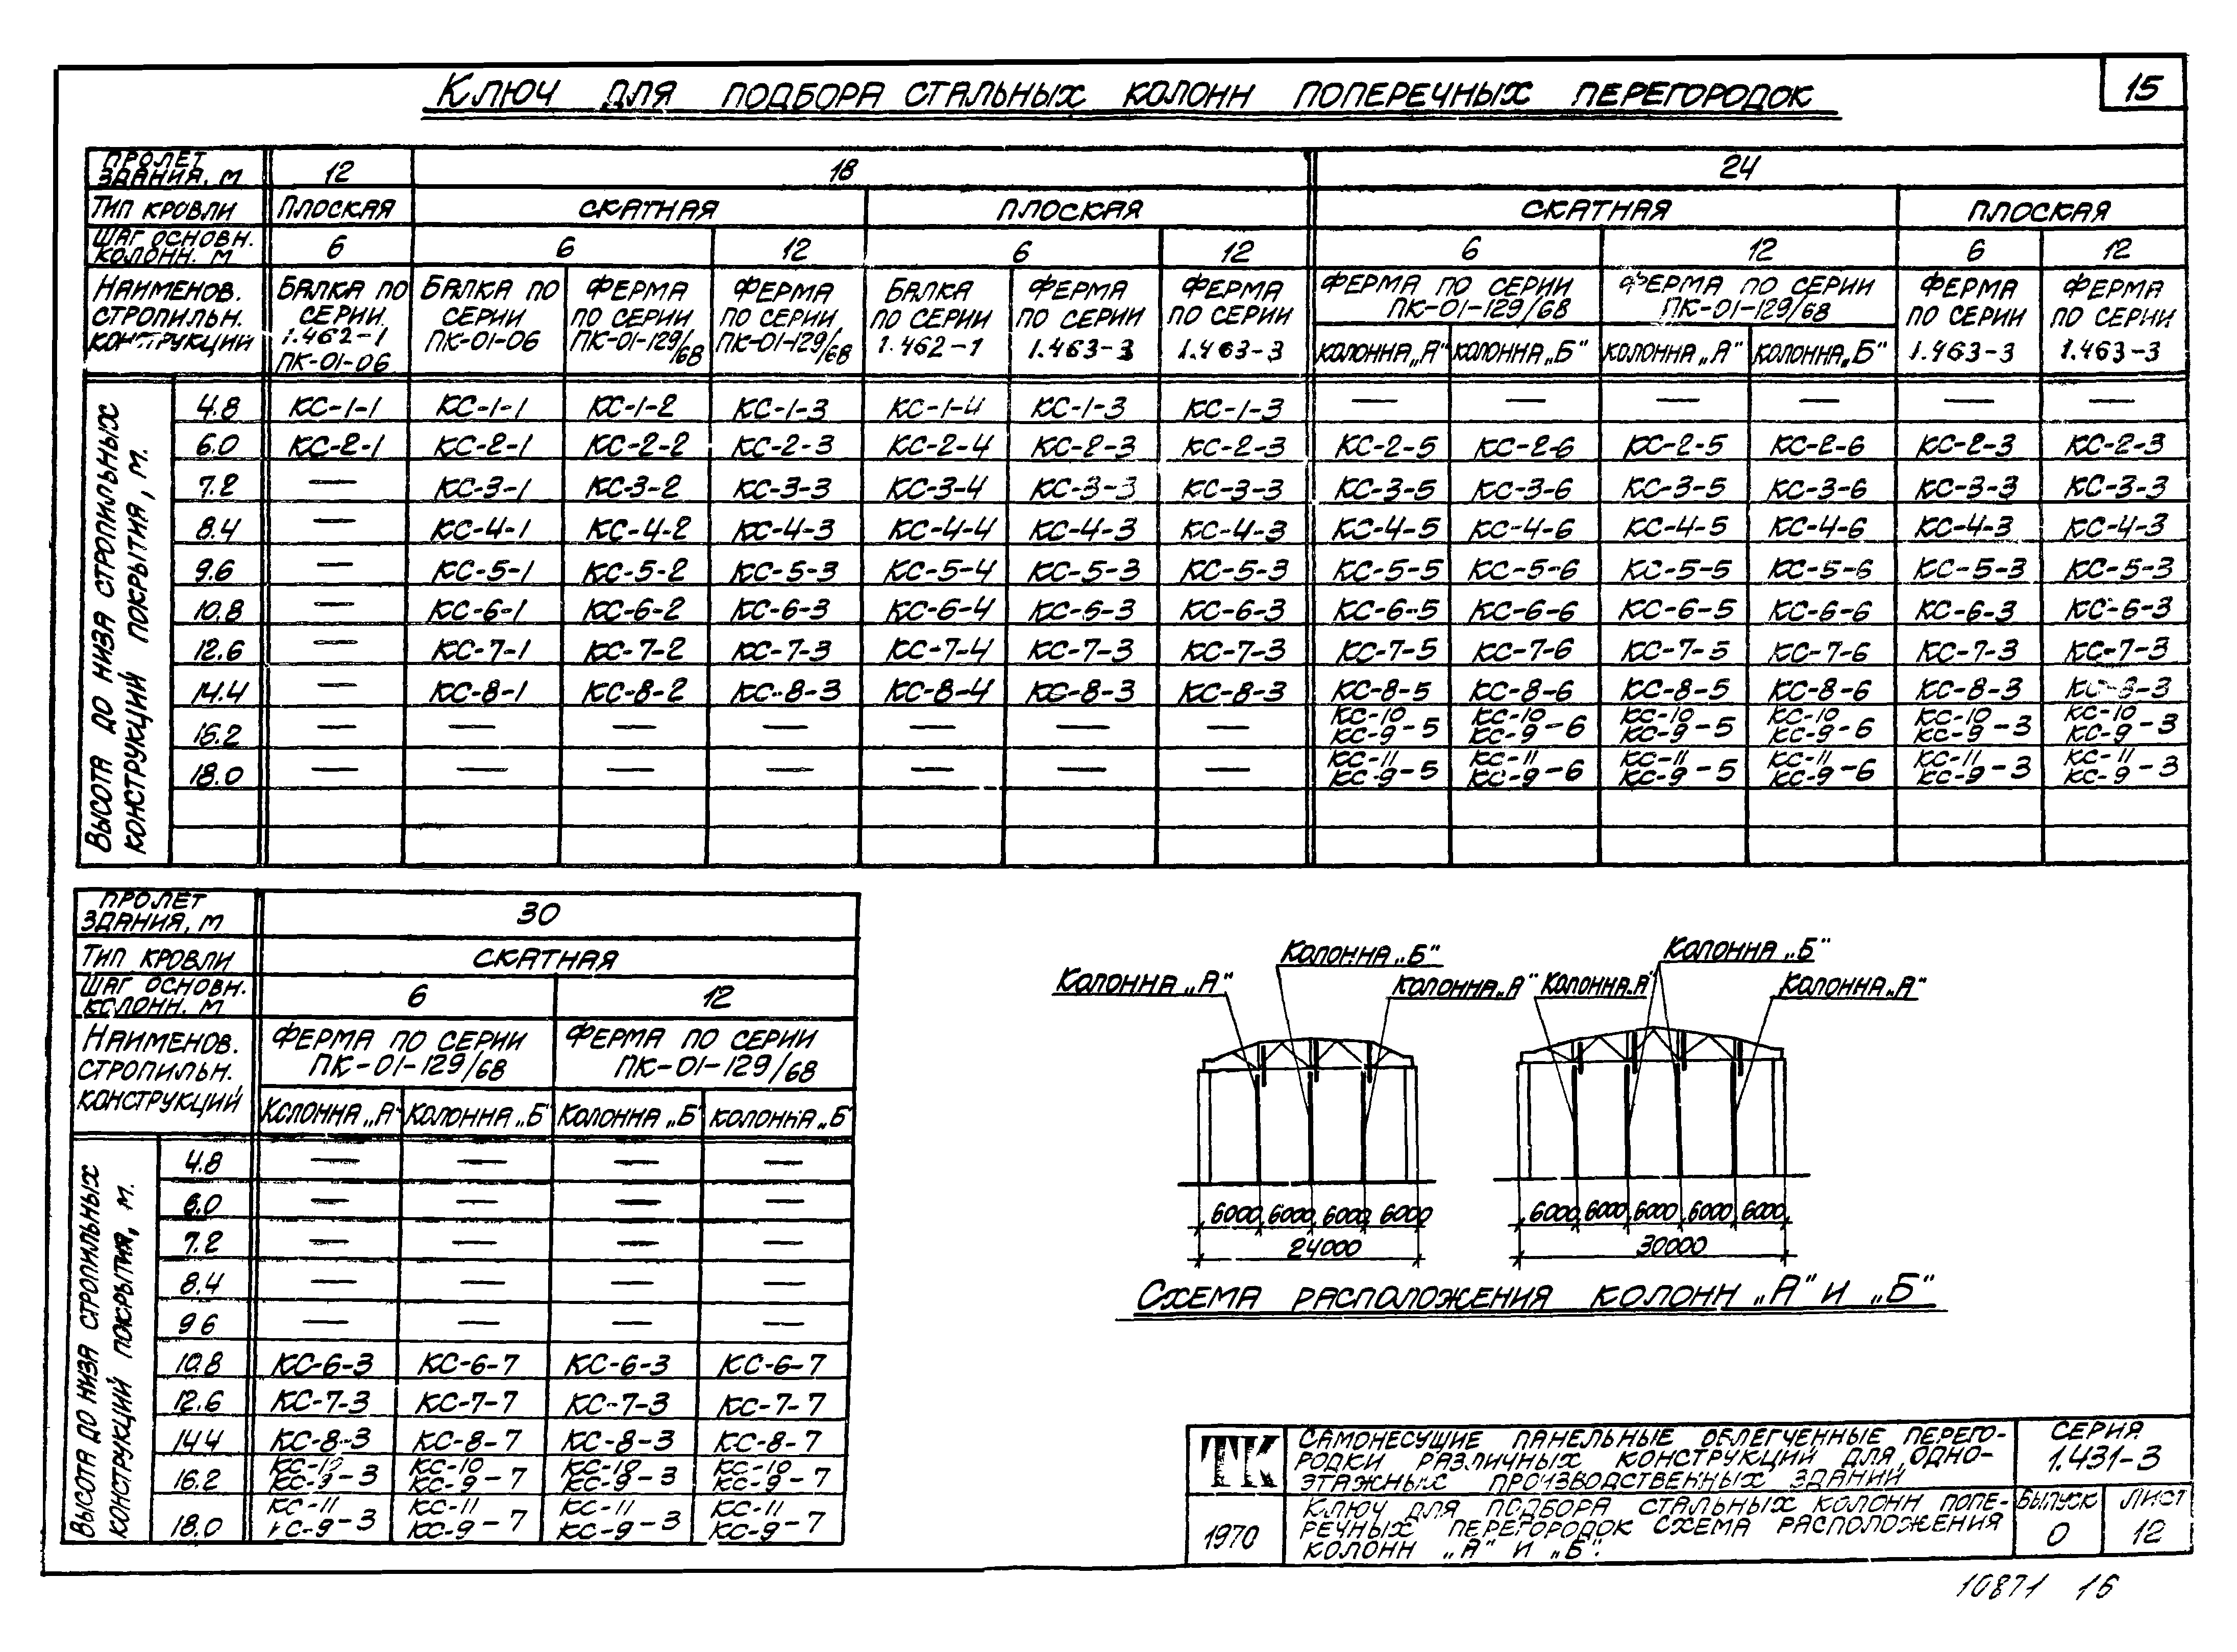 Ключ для подбора стальных колонн поперечных перегородок
15
Пролет здания, м 12 18 24
Тип кровли плоская скатная плоская скатная плоская
Шаг основн. колонн. м 6 6 12 6 12 6 12 6 12
Наименов. стропильн. конструкций
Балка по серии 1.462-1 ПК-01-06
Балка по серии ПК-01-06
Ферма по серии ПК-01-129/68
Ферма по серии ПК-01-129/68
Балка по серии 1.462-1
Ферма по серии 1.463-3
Ферма по серии 1.463-3
Ферма по серии ПК-01-129/68
Ферма по серии ПК-01-129/68
Ферма по серии 1.463-3
Ферма по серии 1.463-3
колонна „А" колонна „Б" колонна „А" колонна „Б"
Высота до низа стропильных конструкций покрытия, м.
4.8 КС-1-1 КС-1-1 КС-1-2 КС-1-3 КС-1-4 КС-1-3 КС-1-3 — — — — — —
6.0 КС-2-1 КС-2-1 КС-2-2 КС-2-3 КС-2-4 КС-2-3 КС-2-3 КС-2-5 КС-2-6 КС-2-5 КС-2-6 КС-2-3 КС-2-3
7.2 — КС-3-1 КС-3-2 КС-3-3 КС-3-4 КС-3-3 КС-3-3 КС-3-5 КС-3-6 КС-3-5 КС-3-6 КС-3-3 КС-3-3
8.4 — КС-4-1 КС-4-2 КС-4-3 КС-4-4 КС-4-3 КС-4-3 КС-4-5 КС-4-6 КС-4-5 КС-4-6 КС-4-3 КС-4-3
9.6 — КС-5-1 КС-5-2 КС-5-3 КС-5-4 КС-5-3 КС-5-3 КС-5-5 КС-5-6 КС-5-5 КС-5-6 КС-5-3 КС-5-3
10.8 — КС-6-1 КС-6-2 КС-6-3 КС-6-4 КС-5-3 КС-6-3 КС-6-5 КС-6-6 КС-6-5 КС-6-6 КС-6-3 КС-6-3
12.6 — КС-7-1 КС-7-2 КС-7-3 КС-7-4 КС-7-3 КС-7-3 КС-7-5 КС-7-6 КС-7-5 КС-7-6 КС-7-3 КС-7-3
14.4 — КС-8-1 КС-8-2 КС-8-3 КС-8-4 КС-8-3 КС-8-3 КС-8-5 КС-8-6 КС-8-5 КС-8-6 КС-8-3 КС-8-3
КС-10 КС-10 КС-10 КС-10 КС-10 КС-10
16.2 — — — — — — — КС-9-5 КС-9-6 КС-9-5 КС-9-6 КС-9-3 КС-9-3
КС-11 КС-11 КС-11 КС-11 КС-11 КС-11
18.0 — — — — — — — КС-9-5 КС-9-6 КС-9-5 КС-9-6 КС-9-3 КС-9-3
Пролет здания, м 30
Тип кровли скатная
Шаг основн. колонн. м 6 12
Наименов. стропильн. конструкций
Ферма по серии ПК-01-129/68
Ферма по серии ПК-01-129/68
Колонна „А" колонна „Б" колонна „Б" колонна „Б"
Высота до низа стропильных конструкций покрытия, м.
4.8 — — — —
6.0 — — — —
7.2 — — — —
8.4 — — — —
9 6 — — — —
10.8 КС-6-3 КС-6-7 КС-6-3 КС-6-7
12.6 КС-7-3 КС-7-7 КС-7-3 КС-7-7
14.4 КС-8-3 КС-8-7 КС-8-3 КС-8-7
КС-10 КС-10 КС-10 КС-10
16.2 КС-9-3 КС-9-7 КС-9-3 КС-9-7
КС-11 КС-11 КС-11 КС-11
18.0 КС-9-3 КС-9-7 КС-9-3 КС-9-7
Колонна „Б" Колонна „Б"
Колонна „А" Колонна „А" Колонна „А" Колонна „А"
6000 6000 6000 6000
24000
6000 6000 6000 6000 6000
30000
Схема расположения колонн „А" и „Б"
ТК
1970
Самонесущие панельные облегченные перего-
родки различных конструкций для одно-
этажных производственных зданий
Ключ для подбора стальных колонн попе-
речных перегородок схема расположения
колонн „А" и „Б".
Серия
1.431-3
Выпуск Лист
0 12
10871 16